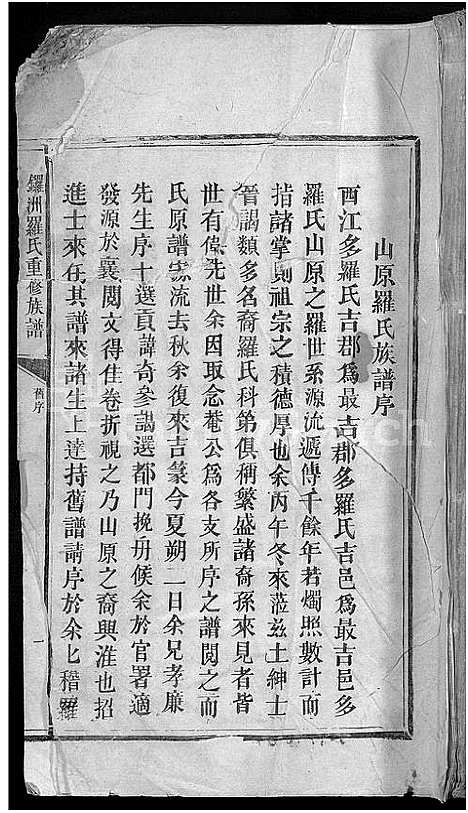 山原羅氏族譜序
西江多羅氏吉郡爲最吉郡多羅氏吉邑爲最吉邑多
羅氏山原之羅世系源流遞傳千餘年若燭照數計而
指諸掌則祖宗之積德厚也余丙午冬來蒞兹土紳士
晉謁類多名裔羅氏科第俱稱繁盛諸裔孫來見者皆
世有傳先世余因取念菴公爲各支所序之譜閱之而
氏原譜源流去秋余復來吉篆今夏朔二日余兄孝廉
先生序十選貢諱奇參謁選都門挽舟候余於官署適
發源於襄閱文得佳卷折視之乃山原之裔興淮也招
進士來在其譜來諸生上達持舊譜請序於余匕稽羅
鑼洲羅氏重修族譜
舊序
一